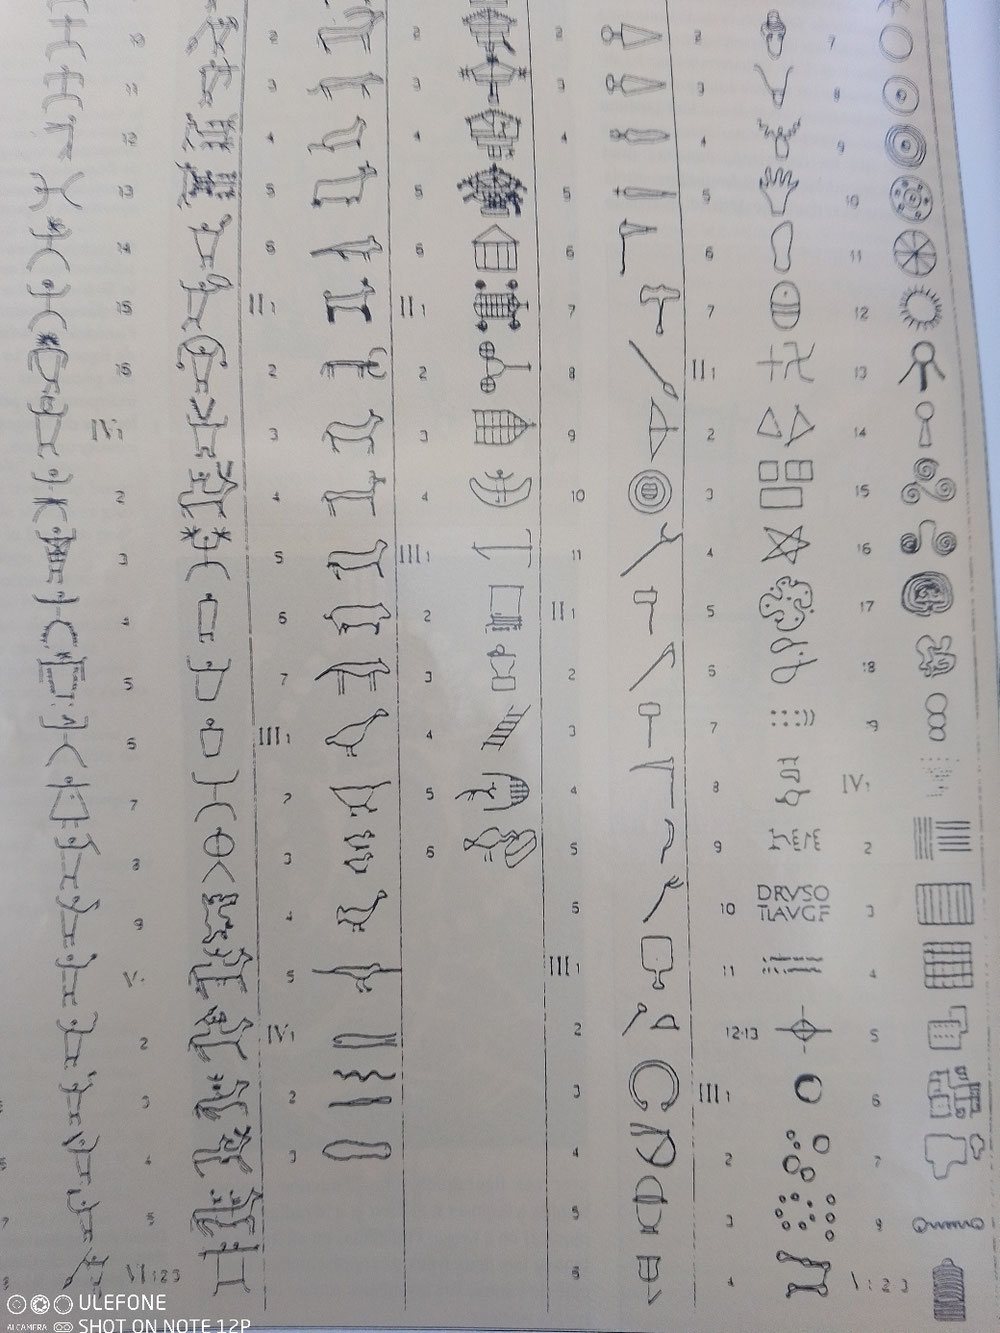 10
11
12
13
14
15
16
IV 1
2
3
4
5
6
7
8
9
2
3
4
5
2
3
4
5
6
II 1
2
3
4
5
6
7
III 1
2
3
4
5
IV 1
2
3
2
3
4
5
6
II 1
2
3
4
III 1
2
3
4
5
6
2
3
4
5
6
7
8
9
10
11
II 1
2
3
4
5
III 1
2
3
4
5
6
2
3
4
5
6
7
II 1
2
3
4
5
6
7
8
9
10
DRVSO
TIAVGF
11
12-13
III 1
2
3
4
7
8
9
10
11
12
13
14
15
16
17
18
19
IV 1
2
3
4
5
6
7
ULEFONE
AI CAMERA
SHOT ON NOTE 12P